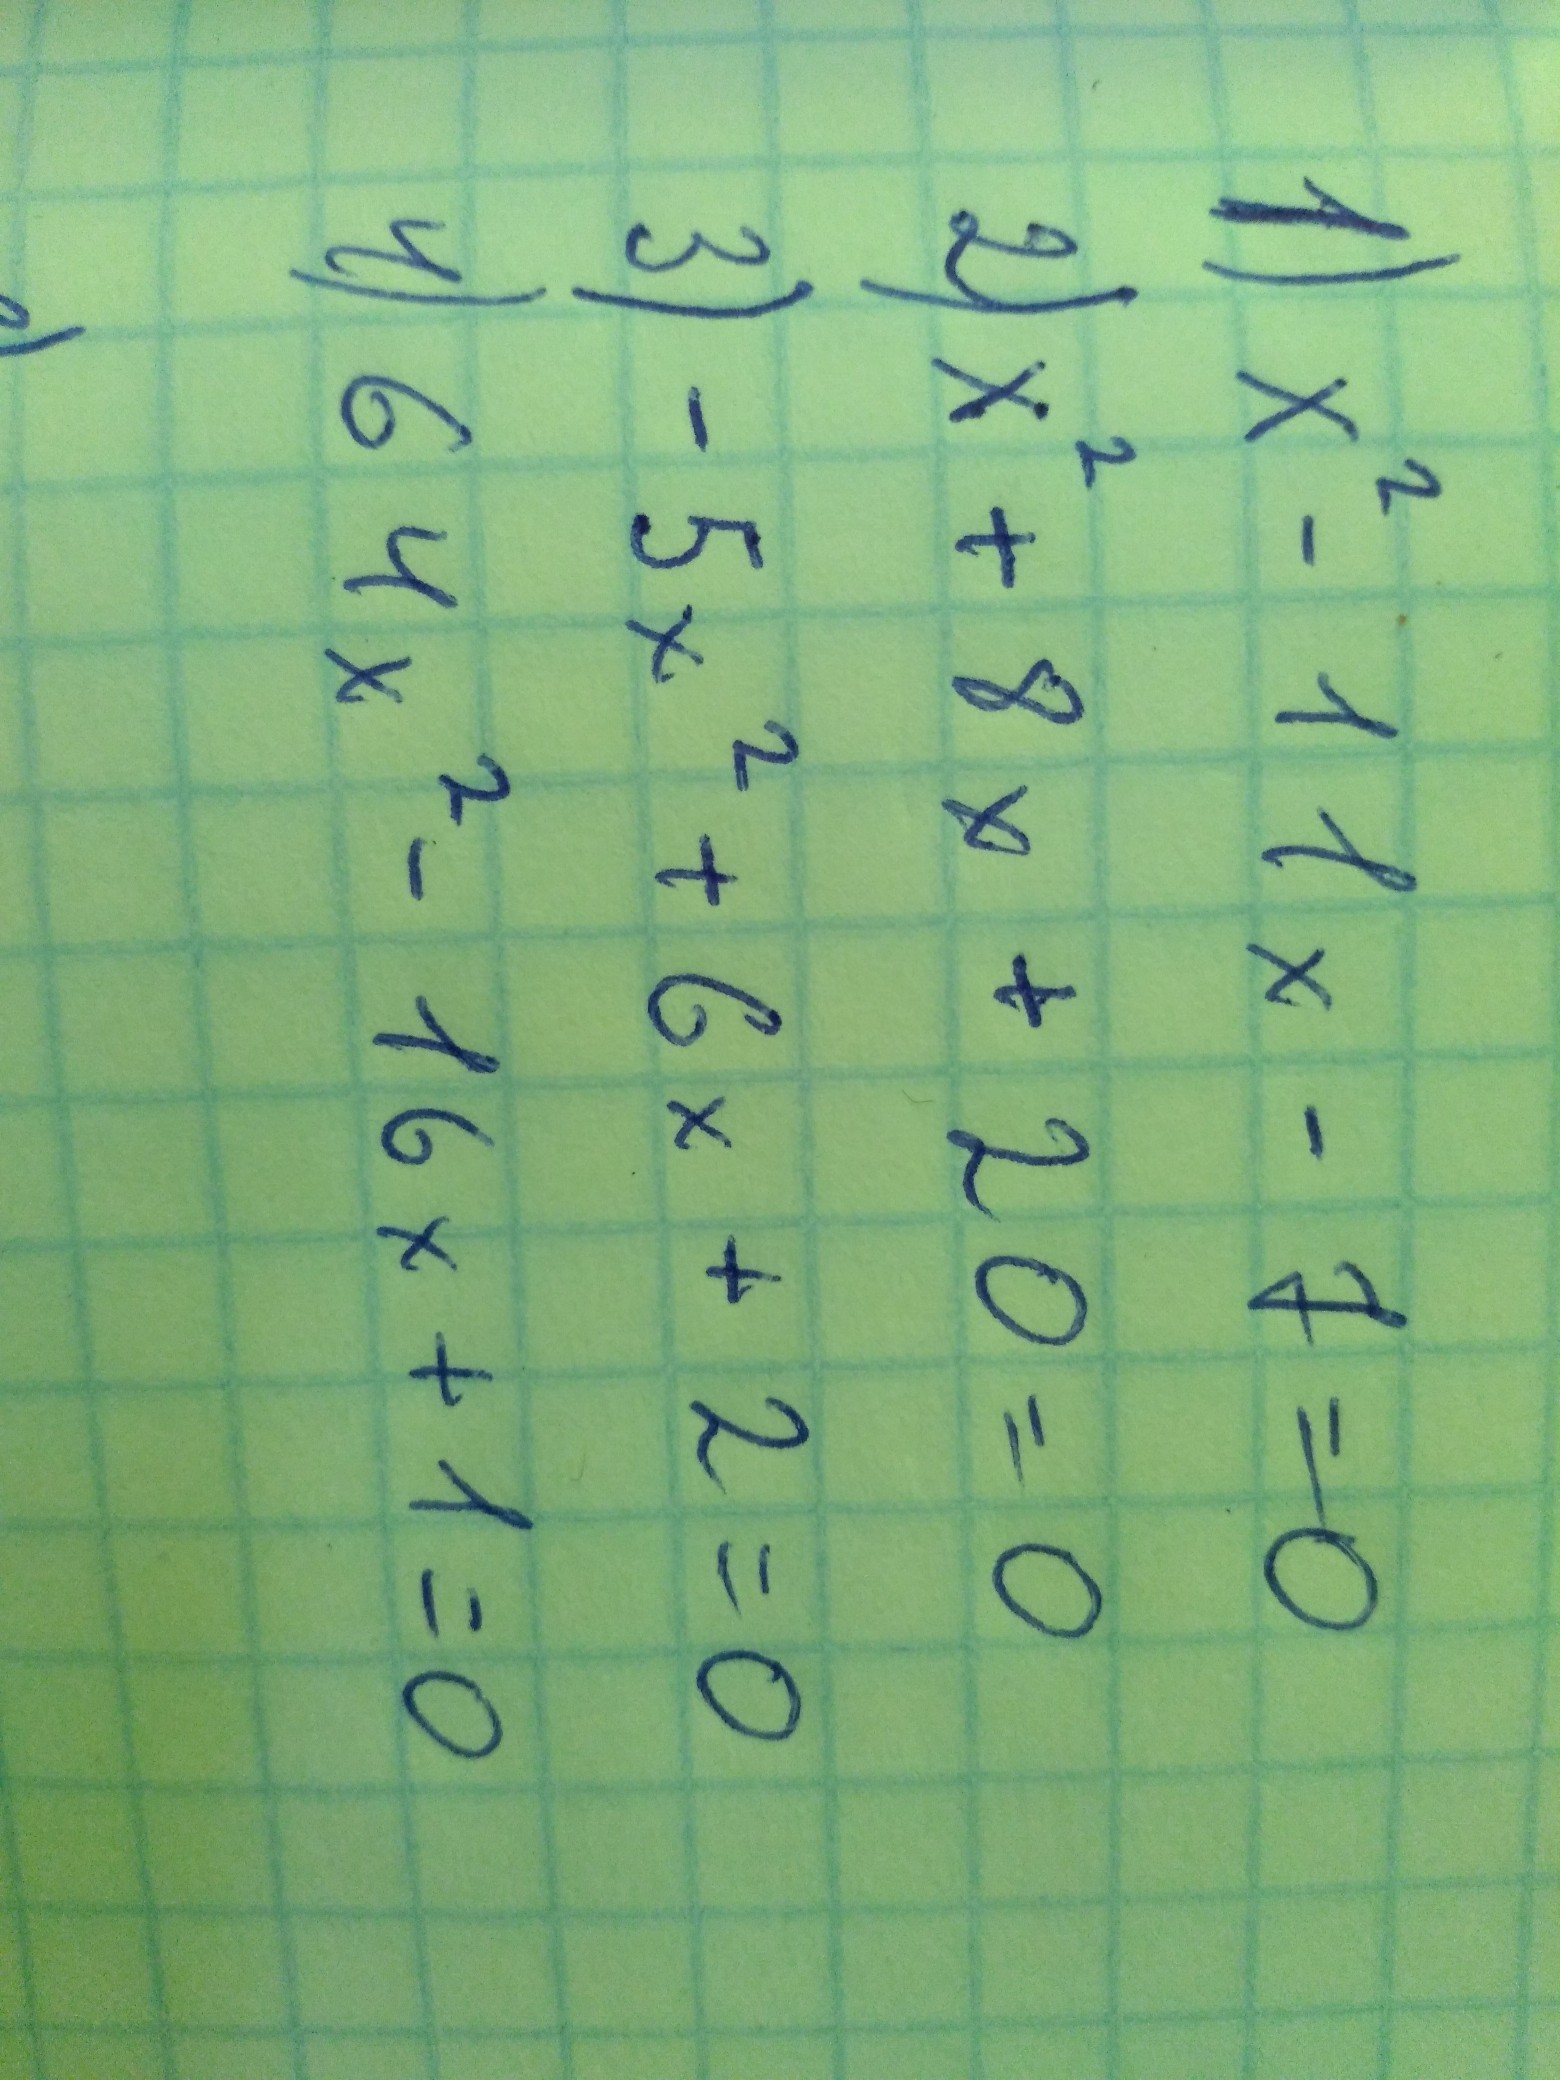 1) x² - 11x - 1 = 0
2) x² + 8x + 20 = 0
3) - 5x² + 6x + 2 = 0
4) 64x² - 16x + 1 = 0